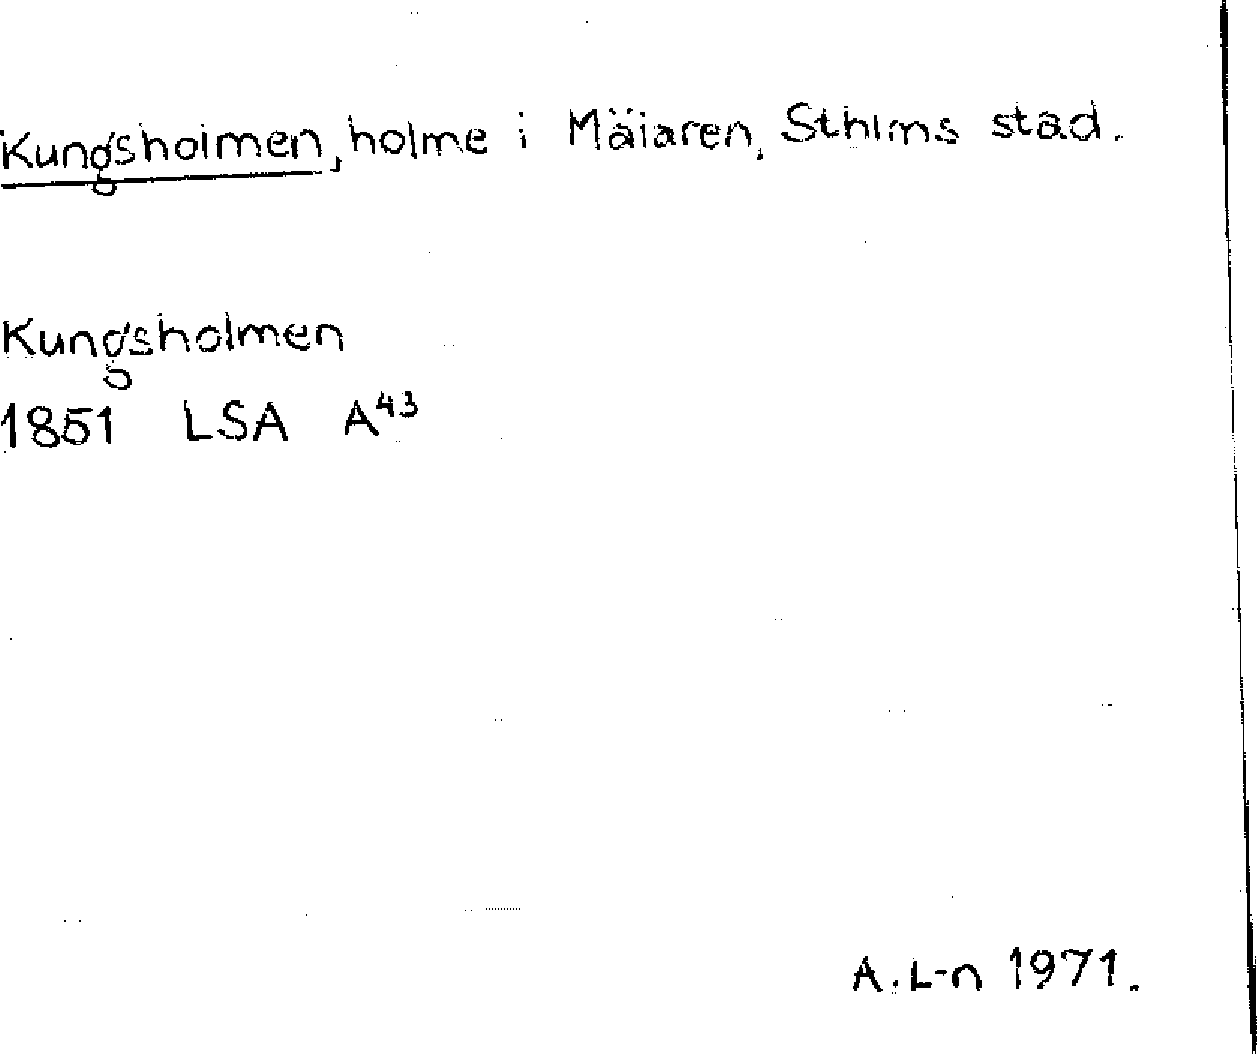 Kungsholmen, holme i Mälaren, Sthlms stad.
Kungsholmen
1851 LSA A⁴³
A. L-n 1971.